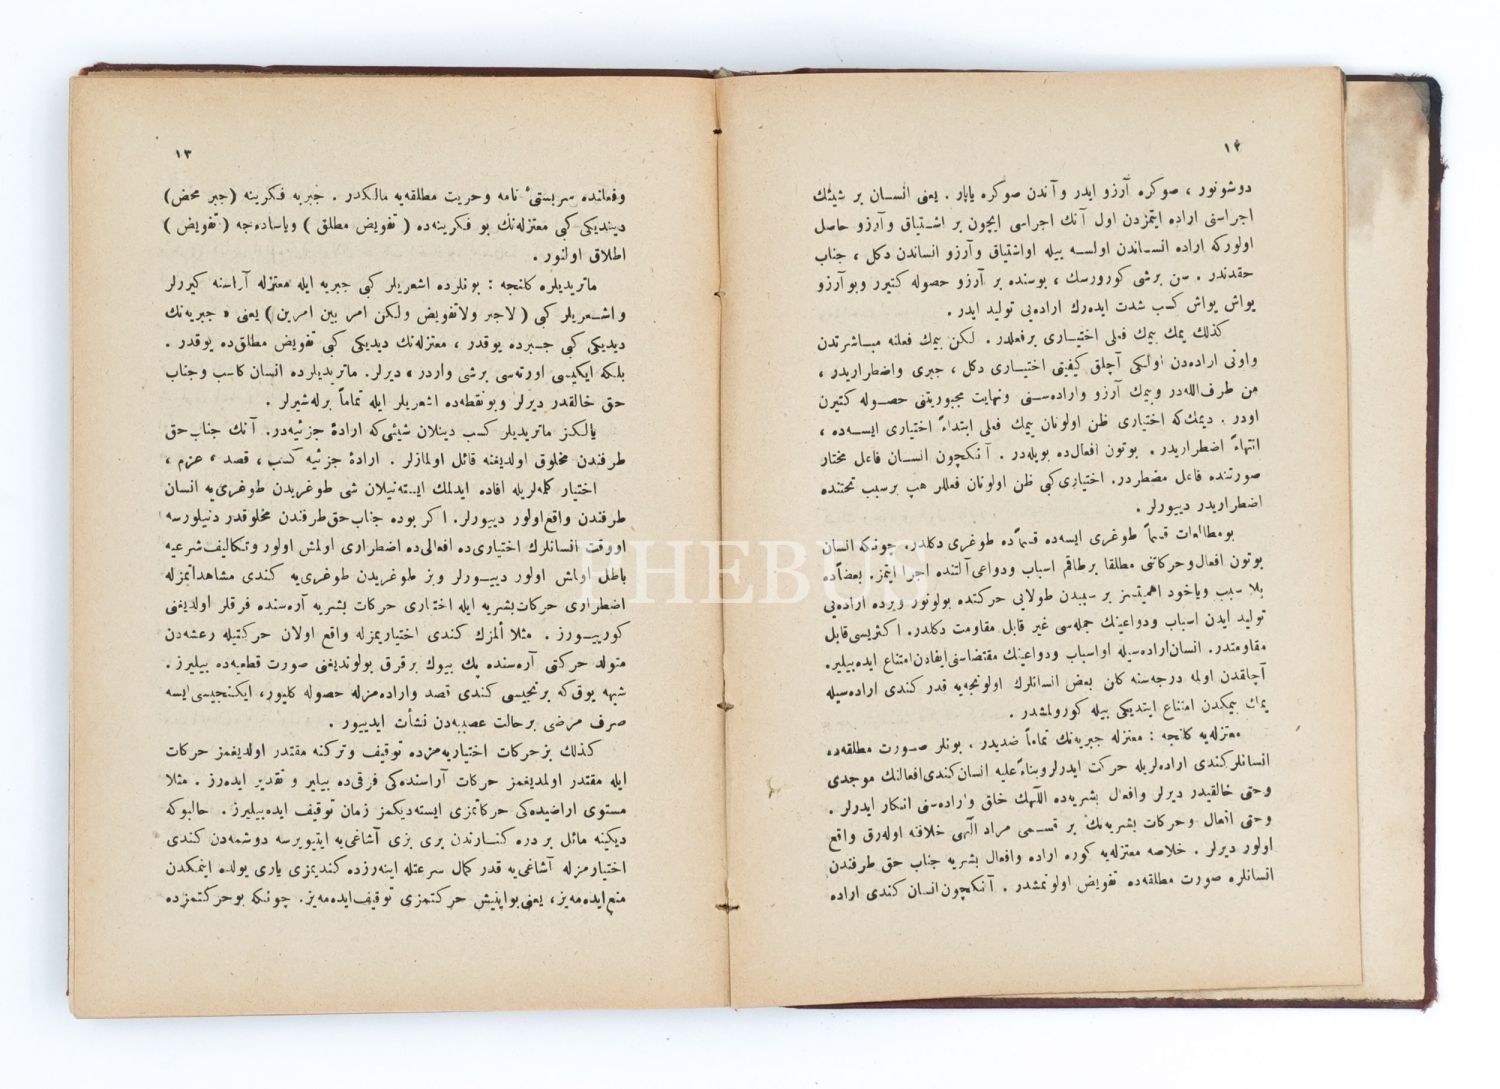 ١٢
دوشونور ، صوکره آرزو ایدر وآندن صوکره یاپار . یعنی انسان بر شیئك
اجراسنی اراده ایتمزدن اول آنك اجراسی ایچون بر اشتیاق وآرزو حاصل
اولورکه اراده انساندن اولسه بیله اواشتیاق وآرزو انساندن دکل ، جناب
حقدندر . سن برشی کورورسك ، بوسنده بر آرزو حصوله کتیرر وبو آرزو
یواش یواش کسب شدت ایده‌رك اراده‌یی تولید ایدر .
کذلك یمك ییمك فعلی اختیاری برفعلدر . لکن ییمك فعلنه مباشرتدن
واونی اراده‌دن اولکی آچلق کیفیتی اختیاری دکل ، جبری واضطراریدر ،
من طرف‌الله‌در وییمك آرزو واراده‌سنی ونهایت مجبوریتنی حصوله کتیرن
اودر . دیمك‌که اختیاری ظن اولونان ییمك فعلی ابتداءً اختیاری ایسه‌ده ،
انتهاءً اضطراریدر . بوتون افعال‌ده بویله‌در . آنکچون انسان فاعل مختار
صورتنده فاعل مضطردر. اختیاری‌کبی ظن اولونان فعللر هپ برسبب تحتنده
اضطراریدر دییورلر .
بومطالعات قسماً طوغری ایسه‌ده قسماًده طوغری دکلدر. چونکه انسان
بوتون افعال وحرکاتنی مطلقا برطاقم اسباب ودواعی آلتنده اجرا ایتمز. بعضاًده
بلا سبب ویاخود اهمیتسز بر سببدن طولایی حرکتده بولونور وبرده اراده‌یی
تولید ایدن اسباب ودواعینك جمله‌سی غیر قابل مقاومت دکلدر. اکثریسی‌قابل
مقاومتدر. انسان‌اراده‌سیله اواسباب ودواعینك مقتضاسنی‌ایفادن‌امتناع ایده‌بیلیر.
آچلقدن اولمه درجه‌سنه کلن بعض انسانلرك اولونجه‌یه قدر کندی اراده‌سیله
یمك ییمکدن امتناع ایتدیکی بیله کورولمشدر .
معتزله‌یه کلنجه : معتزله جبریه‌نك تماماً ضدیدر . بونلر صورت مطلقه‌ده
انسانلرکندی اراده‌لریله حرکت ایدرلروبناءً علیه انسان‌کندی‌افعالنك موجدی
وحتی خالقیدر دیرلر وافعال بشریه‌ده اللهك خلق واراده‌سنی انکار ایدرلر .
وحتی افعال وحرکات بشریه‌نك بر قسمی مراد الٓهی خلافنه اوله‌رق واقع
اولور دیرلر . خلاصه معتزله‌یه کوره اراده وافعال بشریه جناب حق طرفندن
انسانلره صورت مطلقه‌ده تفویض اولونمشدر . آنکچون‌انسان کندی اراده
١٣
وفعلنده سربستیٔ تامه وحریت مطلقه‌یه مالکدر . جبریه فکرینه (جبر محض)
دینیدیکی کبی معتزله‌نك بو فکرینه‌ده ( تفویض مطلق ) ویاساده‌جه ( تفویض )
اطلاق اولنور .
ماتریدیلره کلنجه : بونلرده اشعریلر کبی جبریه ایله معتزله آراسنه کیررلر
واشعریلر کبی ( لاجبر ولاتفویض ولکن امر بین امرین ) یعنی « جبریه‌نك
دیدیکی کبی جبرده یوقدر ، معتزله‌نك دیدیکی کبی تفویض مطلق‌ده یوقدر .
بلکه ایکیسی اورته‌سی برشی واردر » دیرلر. ماتریدیلرده انسان کاسب وجناب
حق خالقدر دیرلر وبونقطه‌ده اشعریلر ایله تماماً برله‌شیرلر .
یالکز ماتریدیلر کسب دینلان شیئی‌که ارادهٔ جزئیه‌در. آنك جناب حق
طرفندن مخلوق اولدیغنه قائل اولمازلر . ارادهٔ جزئیه کسب ، قصد ، عزم ،
اختیار کلمه‌لریله افاده ایدلمك ایسته‌نیلان شی طوغریدن طوغری‌یه انسان
طرفندن واقع‌اولور دییورلر. اکر بوده جناب حق‌طرفندن مخلوقدر دنیلورسه
اووقت انسانلرك اختیاری‌ده افعالی‌ده اضطراری اولمش اولور وتکالیف‌شرعیه
باطل اولمش اولور دییورلر وبز طوغریدن طوغری‌یه کندی مشاهداتمزله
اضطراری حرکات‌بشریه ایله اختیاری حرکات بشریه آره‌سنده فرقلر اولدیغنی
کورییورز . مثلا ألمزك کندی اختیاریمزله واقع اولان حرکتیله رعشه‌دن
متولد حرکتی آره‌سنده پك بیوك برفرق بولوندیغنی صورت قطعیه‌ده بیلیرز.
شبهه یوق‌که برنجیسی کندی قصد واراده‌مزله حصوله کلیور، ایکنجیسی ایسه
صرف مرضی برحالت عصبیه‌دن نشأت ایدییور .
کذلك بزحرکات اختیاریه‌مزده توقیف وترکنه مقتدر اولدیغمز حرکات
ایله مقتدر اولمدیغمز حرکات آراسنده‌کی فرقی‌ده بیلیر و تقدیر ایده‌رز . مثلا
مستوی اراضیده‌کی حرکاتمزی ایسته‌دیکمز زمان توقیف ایده‌بیلیرز . حالبوکه
دیکینه مائل بر دره کنارندن بری بزی آشاغی‌یه ایتیویرسه دوشمه‌دن کندی
اختیارمزله آشاغی‌یه قدر کمال سرعتله اینه‌رزده کندیمزی یاری یولده اینمکدن
منع‌ایده‌مه‌یز، یعنی‌بواینیش حرکتمزی توقیف‌ایده‌مه‌یز. چونکه بوحرکتمزده
THEBUS